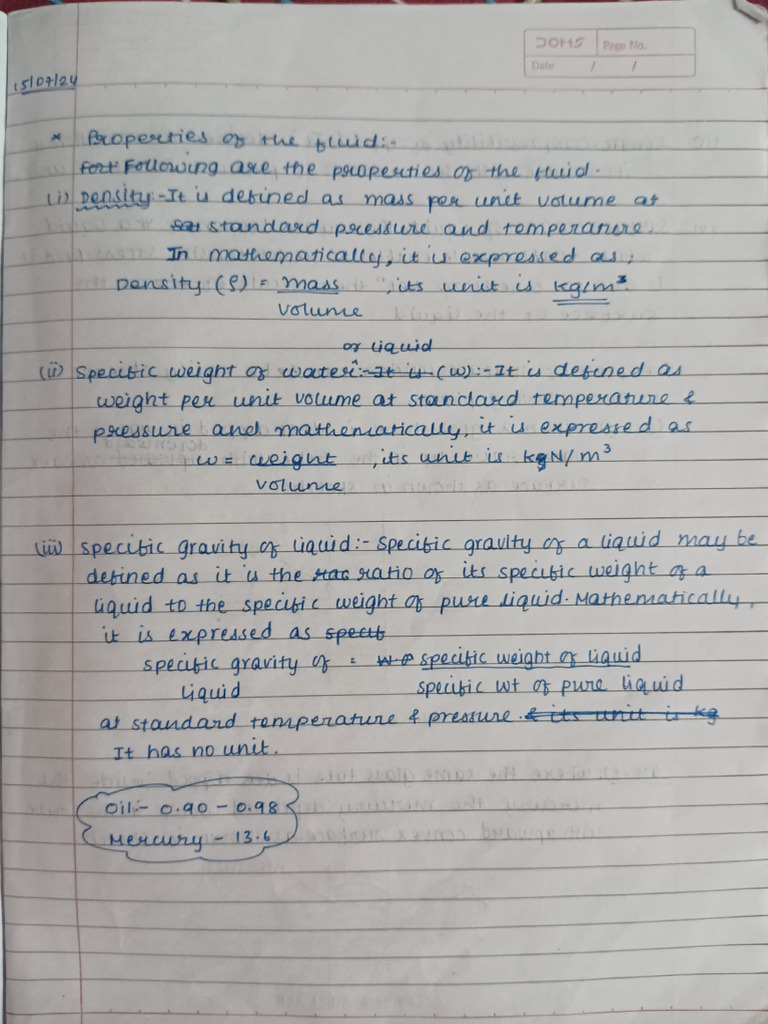 DOMS Page No.
Date / /
15/07/24
* Properties of the fluid:-
Following are the properties of the fluid.
(i) Density:- It is defined as mass per unit volume at
standard pressure and temperature.
In mathematically, it is expressed as;
Density (ρ) = mass , its unit is kg/m³
volume
or liquid
(ii) Specific weight of water^:- It is (w):- It is defined as
weight per unit volume at standard temperature &
pressure and mathematically, it is expressed as
w = weight , its unit is kgN/m³
volume
(iii) Specific gravity of liquid:- Specific gravity of a liquid may be
defined as it is the ratio of its specific weight of a
liquid to the specific weight of pure liquid. Mathematically,
it is expressed as specif
specific gravity of = specific weight of liquid
liquid specific wt of pure liquid
at standard temperature & pressure. & its unit is kg
It has no unit.
Oil:- 0.90 - 0.98
Mercury - 13.6